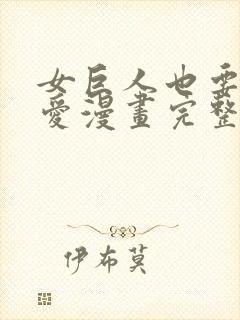 女巨人也要
愛漫畫完整
伊布莫